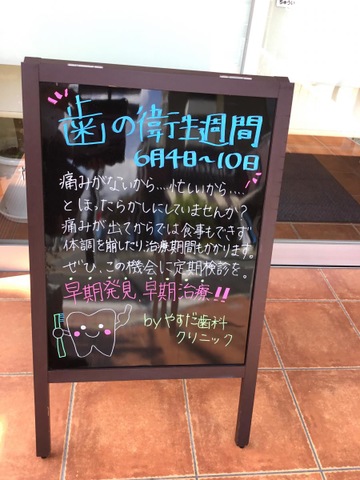 歯の衛生週間
6月4日〜10日
痛みがないから....忙しいから....
とほったらかしにしていませんか?
痛みが出てからでは食事もできず
体調を崩したり治療期間もかかります。
ぜひ、この機会に定期検診を。
早期発見、早期治療!!
byやすだ歯科
クリニック